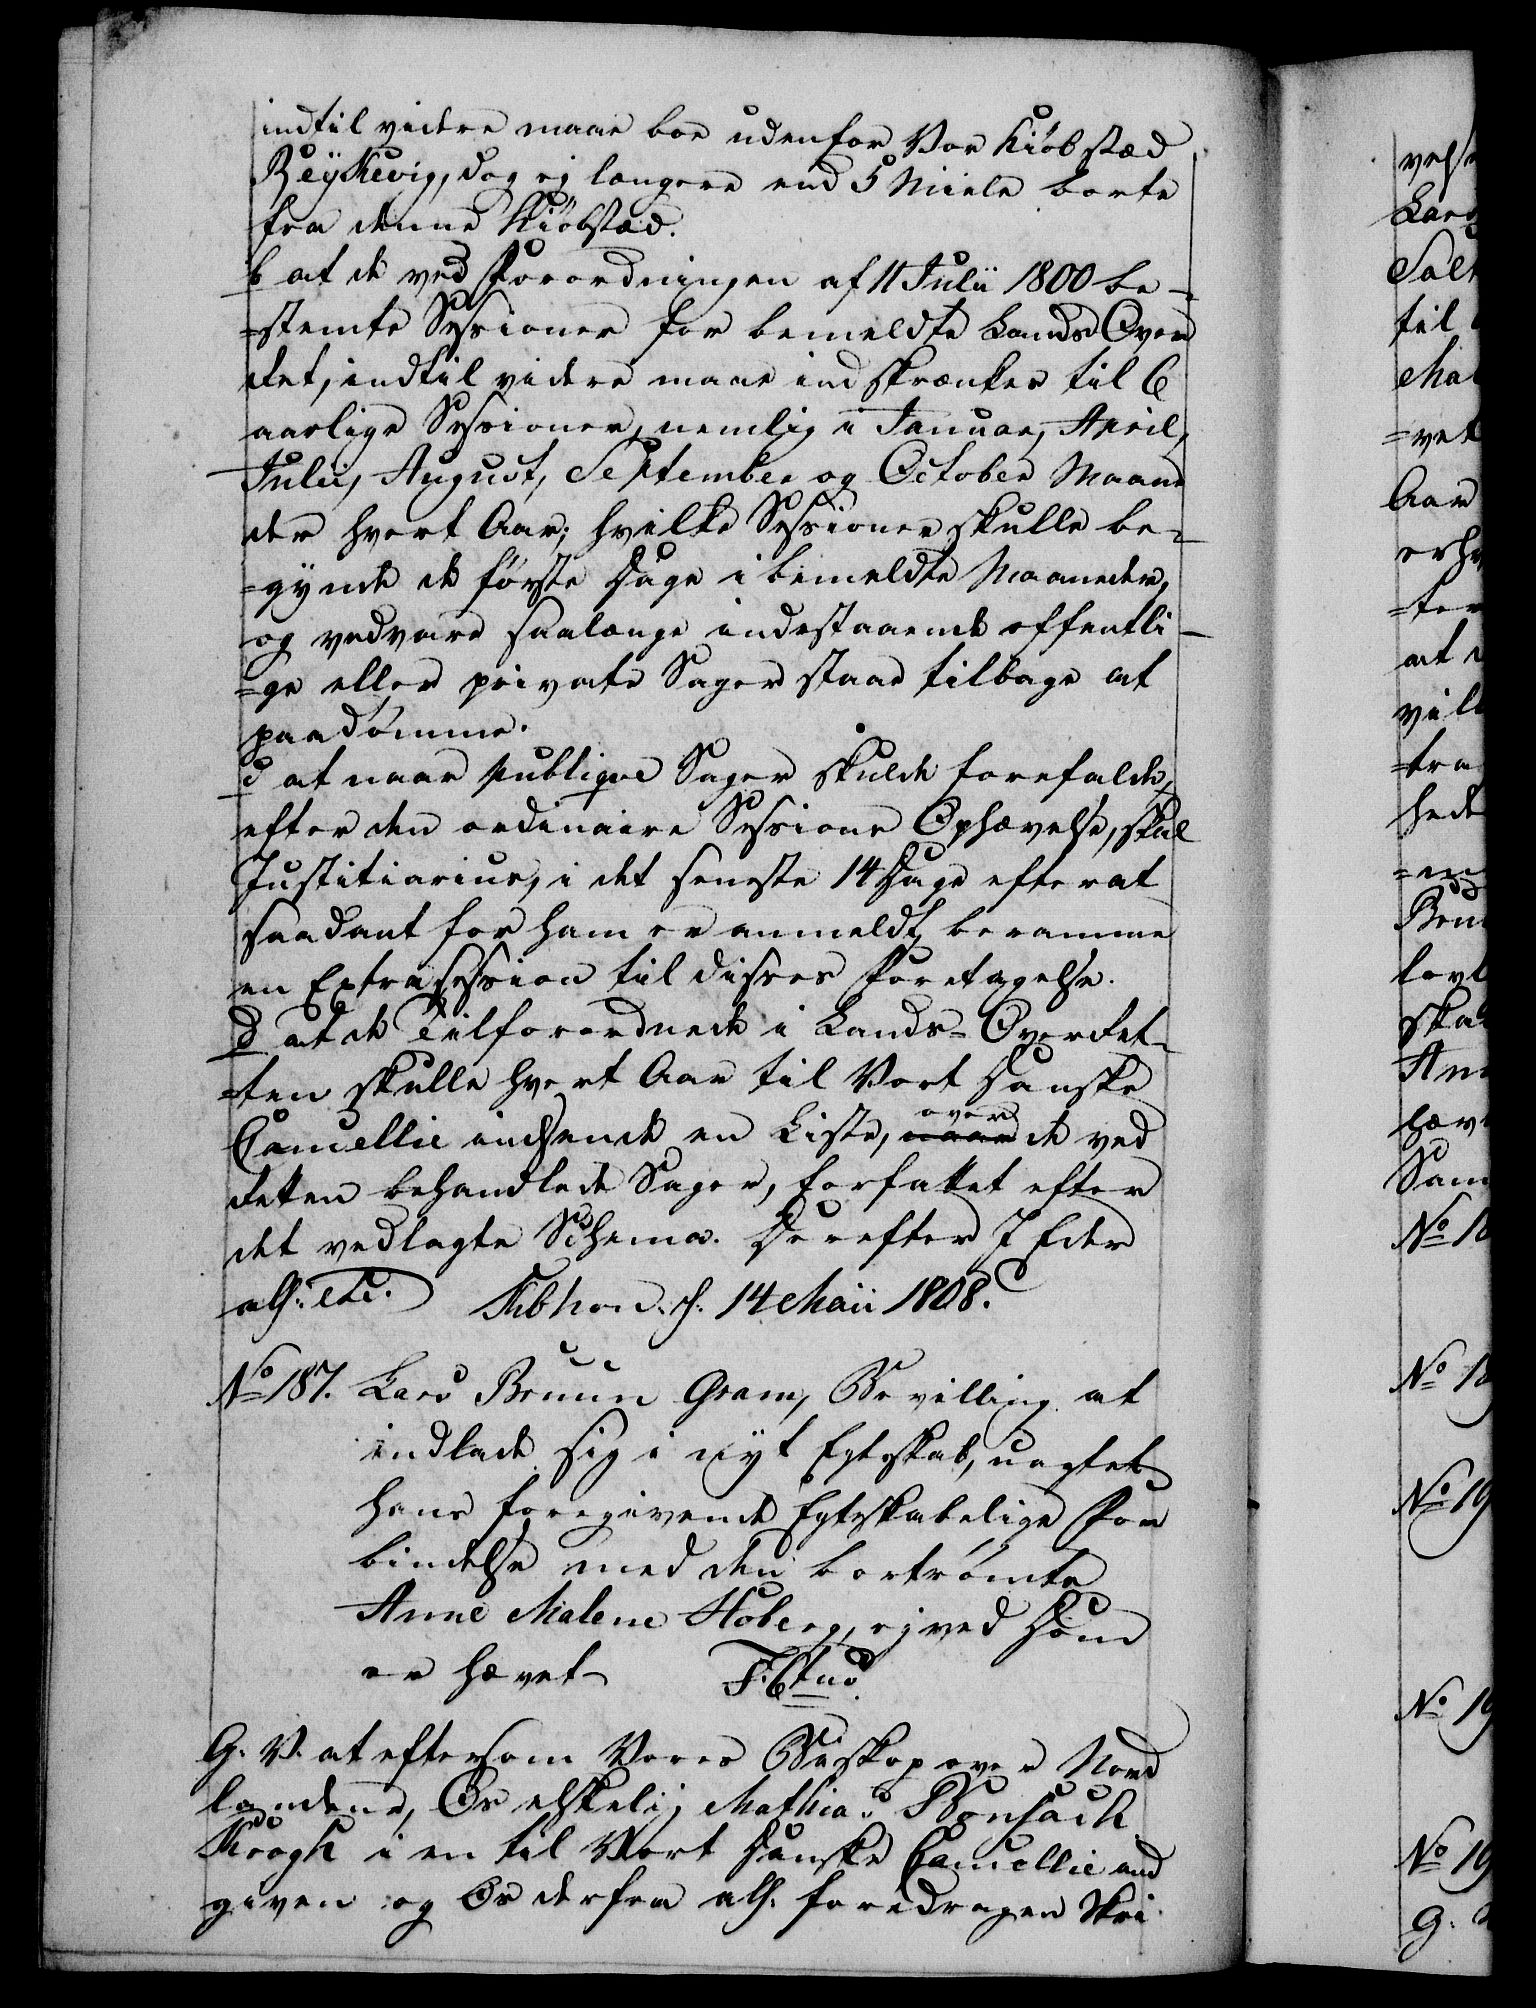 indtil videre maae boe udenfor Vor Kiöbstæd
Reykevig, dog ej længere end 5 Miile borte
fra denne Kiöbstæd.
b at de ved Forordningen af 11 Julii 1800 be-
=stemte Sessioner for bemeldte Lands Over
Ret, indtil videre maae indskrænkes til 6
aarlige Sessioner, nemlig i Januar, April,
Julii, August, September og October Maane
der hvert Aar; hvilke Sessioner skulle be-
=gynde de første Dage i bemeldte Maaneder,
og vedvare saalænge indestaaende offentli-
=ge eller private Sager staae tilbage at
paadömme.
c at naar publiqve Sager skulde forefalde,
efter den ordinaire Sessions Ophævelse, skal
Justitiarius, i det seneste 14 Dage efterat
saadant for ham er anmeldt, beramme
en Extrasession til disses Foretagelse.
d at de Tilforordnede i Lands-Overret-
=ten skulle hvert Aar til Vort Danske
Cancellie indsende en Liste, over de ved
Retten behandlede Sager, forfattet efter
det vedlagte Schema. Derefter I Eder
als: etc. Kibhavn. d. 14 Maii 1808.
No 187. Lars Bruun Gram, Bevilling at
indlade sig i nyt Egteskab, uagtet
hans foregivende Egteskabelige For
bindelse med den bortrömte
Anne Malene Hoberg, ej ved Dom
er hævet
G. V. at eftersom Vores Biskop over Nord
landene, Os elskelig Mathias Bonsach
Krogh i en til Vort Danske Cancellie ind
given og Os derfra all. foredragen Skri
vels
Lars
Salt
til
Mal
=vet
Aar
erhv
=ter
at
vil
=tra
hed
=en
Bru
lovl
skal
An
hæv
Sam
No 18
No 18
No 19
No 19
No 19
G.